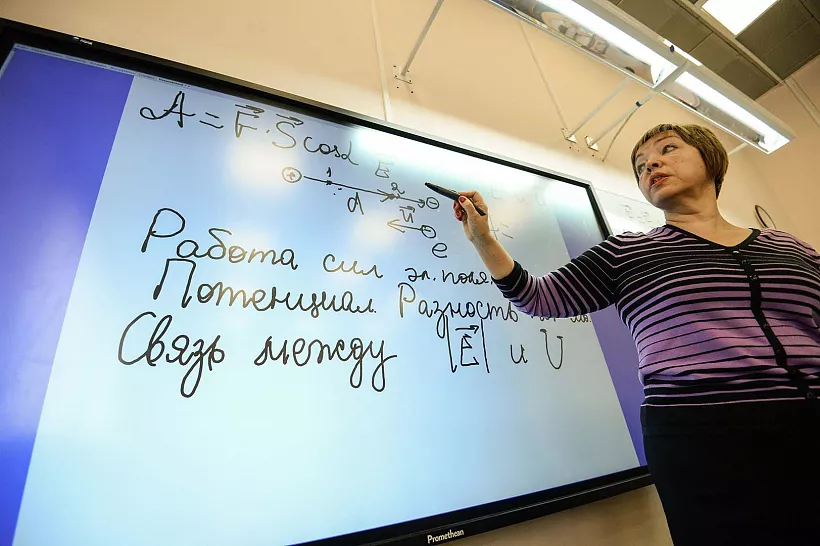 A = F · S cosα
⊕ 1 E 2 ⊖
d u ⊖
e
Работа сил эл. поля
Потенциал. Разность
Связь между |E| и U
Promethean